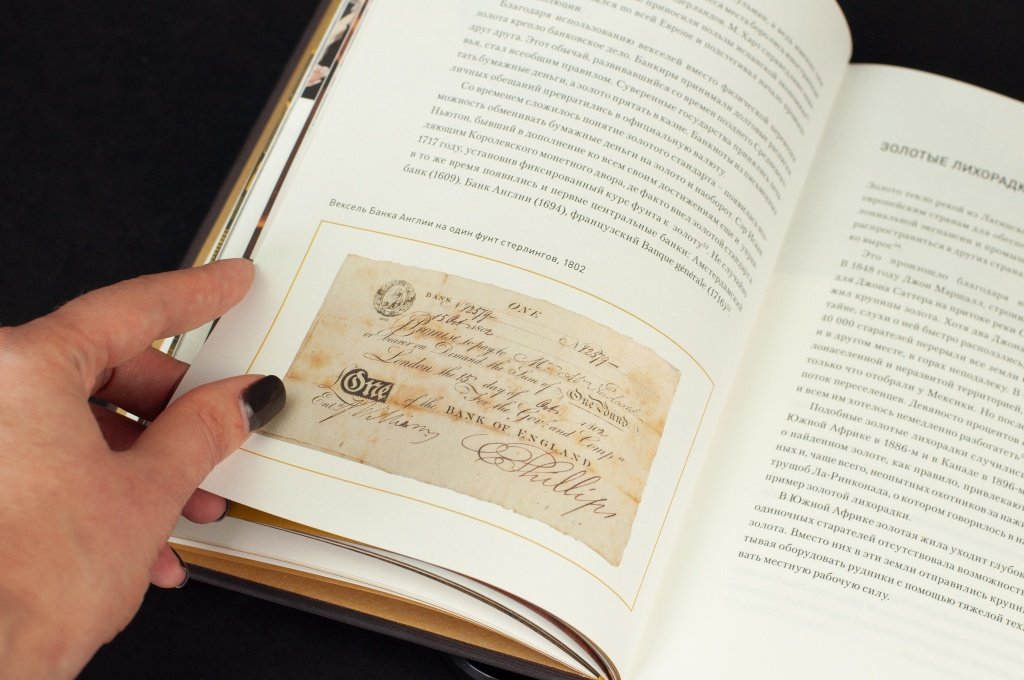 приносили пользу испанской экономике,
по всей Европе и подстегивал начало промыш-
Благодаря использованию векселей вместо физической перевозки
золота крепло банковское дело. Банкиры принимали долговые расписки
друг друга. Этот обычай, развивавшийся со времен позднего Средневеко-
вья, стал всеобщим правилом. Суверенные государства принялись печа-
тать бумажные деньги, а золото прятать в казне. Банкноты из письменных
личных обещаний превратились в официальную валюту.
Со временем сложилось понятие золотого стандарта – появилась воз-
можность обменивать бумажные деньги на золото и наоборот. Сэр Исаак
Ньютон, бывший в дополнение ко всем своим достижениям еще и управ-
ляющим Королевского монетного двора, де факто ввел золотой стандарт в
1717 году, установив фиксированный курс фунта к золоту²². Не случайно
в то же время появились и первые центральные банки: Амстердамский
банк (1609), Банк Англии (1694), французский Banque générale (1716)²³
Вексель Банка Англии на один фунт стерлингов, 1802
ONE
BANK Nº2579 Nº2579
13 Oct. 1802
Promise to pay to Mr
or bearer on Demand the Sum of One Pound
London the 13 day of Oct. 1802
For the Govr. and Compa.
One of the BANK OF ENGLAND
Entd.
C Phillips
ЗОЛОТЫЕ ЛИХОРАДК
Золото текло рекой из Латинск
европейским странам для обеспе
лониальной экспансии и промыш
распространиться в других страна
ко вырос²⁴.
Это произошло благодаря н
В 1848 году Джон Маршалл, строи
для Джона Саттера на притоке реки
жил крупицы золота. Хотя два Джона
тайне, слухи о ней быстро расползлись
40 000 старателей перерыли все земли
и в другом месте, в горах неподалеку. В
лонаселенной и неразвитой территорией,
только что отобрали у Мексики. Но после
поток переселенцев. Девяносто процентов
и всем им хотелось немедленно разбогатеть
Подобные золотые лихорадки случились
Южной Африке в 1886-м и в Канаде в 1896-м
о найденном золоте, как правило, привлекают
ных и, чаще всего, неопытных охотников за нажи
трущоб Ла-Ринконада, о котором говорилось в на
пример золотой лихорадки.
В Южной Африке золотая жила уходит глубок
одиночных старателей отсутствовала возможност
золота. Вместо них в эти земли отправились крупн
тывая оборудовать рудники с помощью тяжелой тех
вать местную рабочую силу.